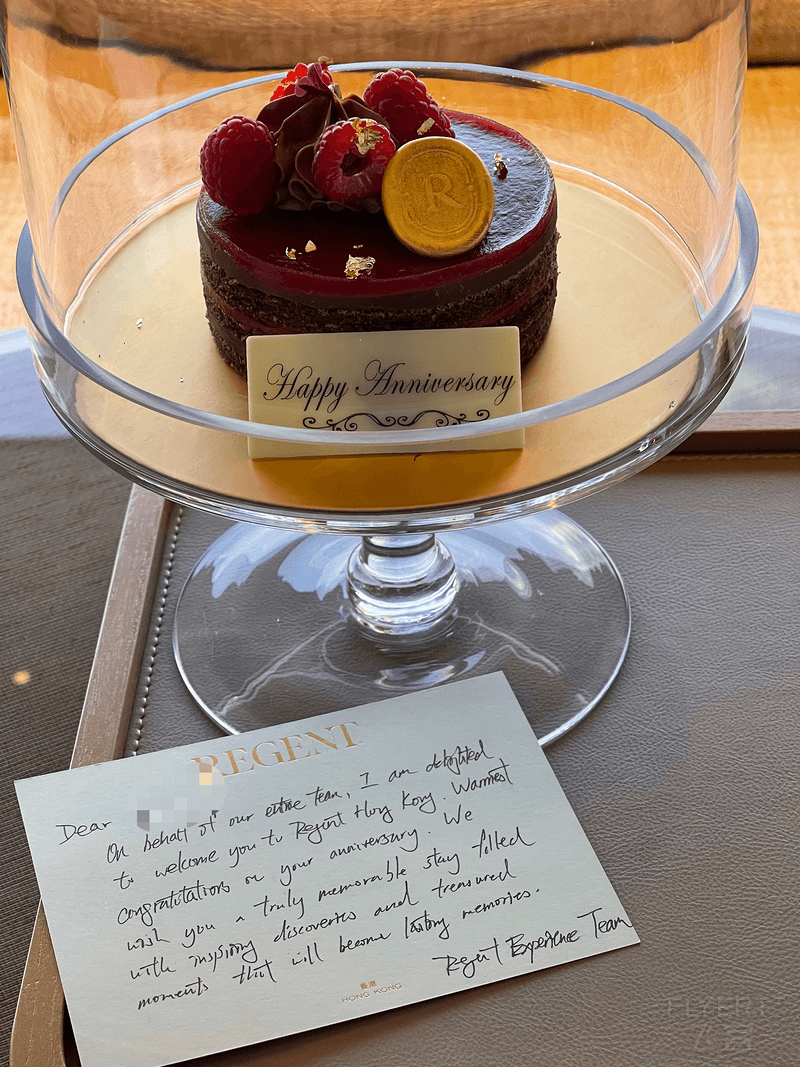 R
Happy Anniversary
REGENT
Dear
On behalf of our entire team, I am delighted
to welcome you to Regent Hong Kong. Warmest
congratulations on your anniversary. We
wish you a truly memorable stay filled
with inspiring discoveries and treasured
moments that will become lasting memories.
Regent Experience Team
香港
HONG KONG